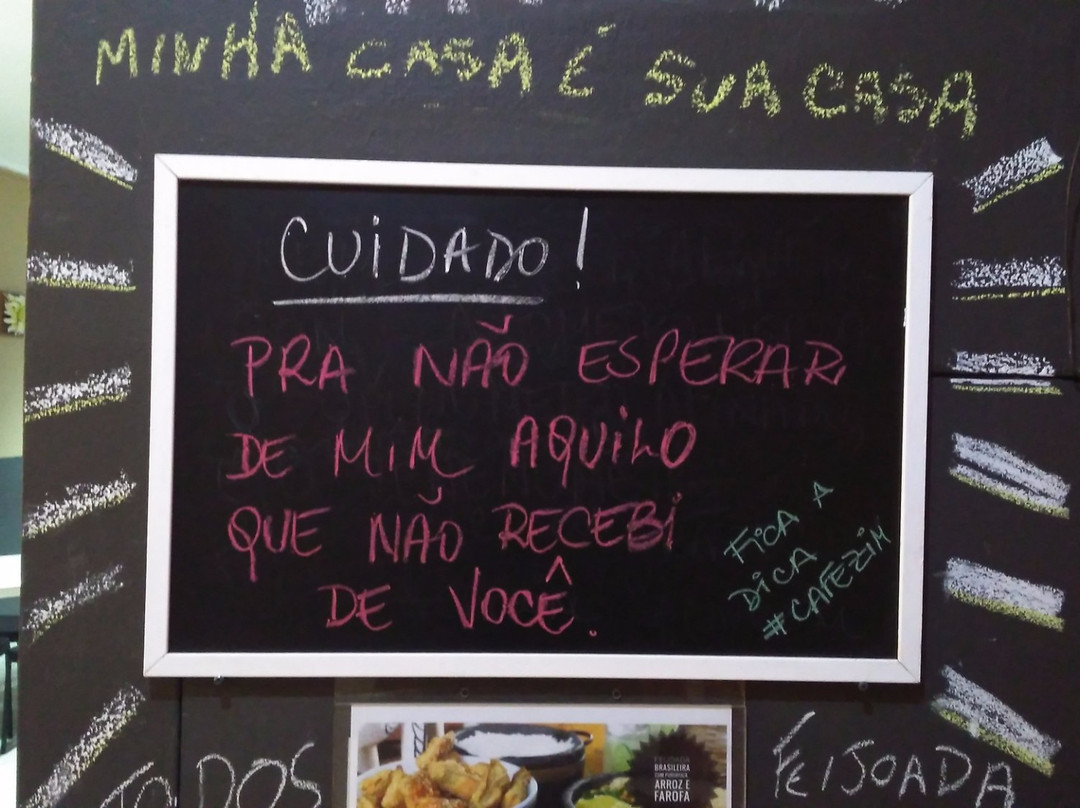 MINHA CASA É SUA CASA
CUIDADO!
PRA NÃO ESPERAR
DE MIM AQUILO
QUE NÃO RECEBI
DE VOCÊ.
FICA A
DICA
#CAFEZIM
TODOS
FEIJOADA
BRASILEIRA
ARROZ E
FAROFA